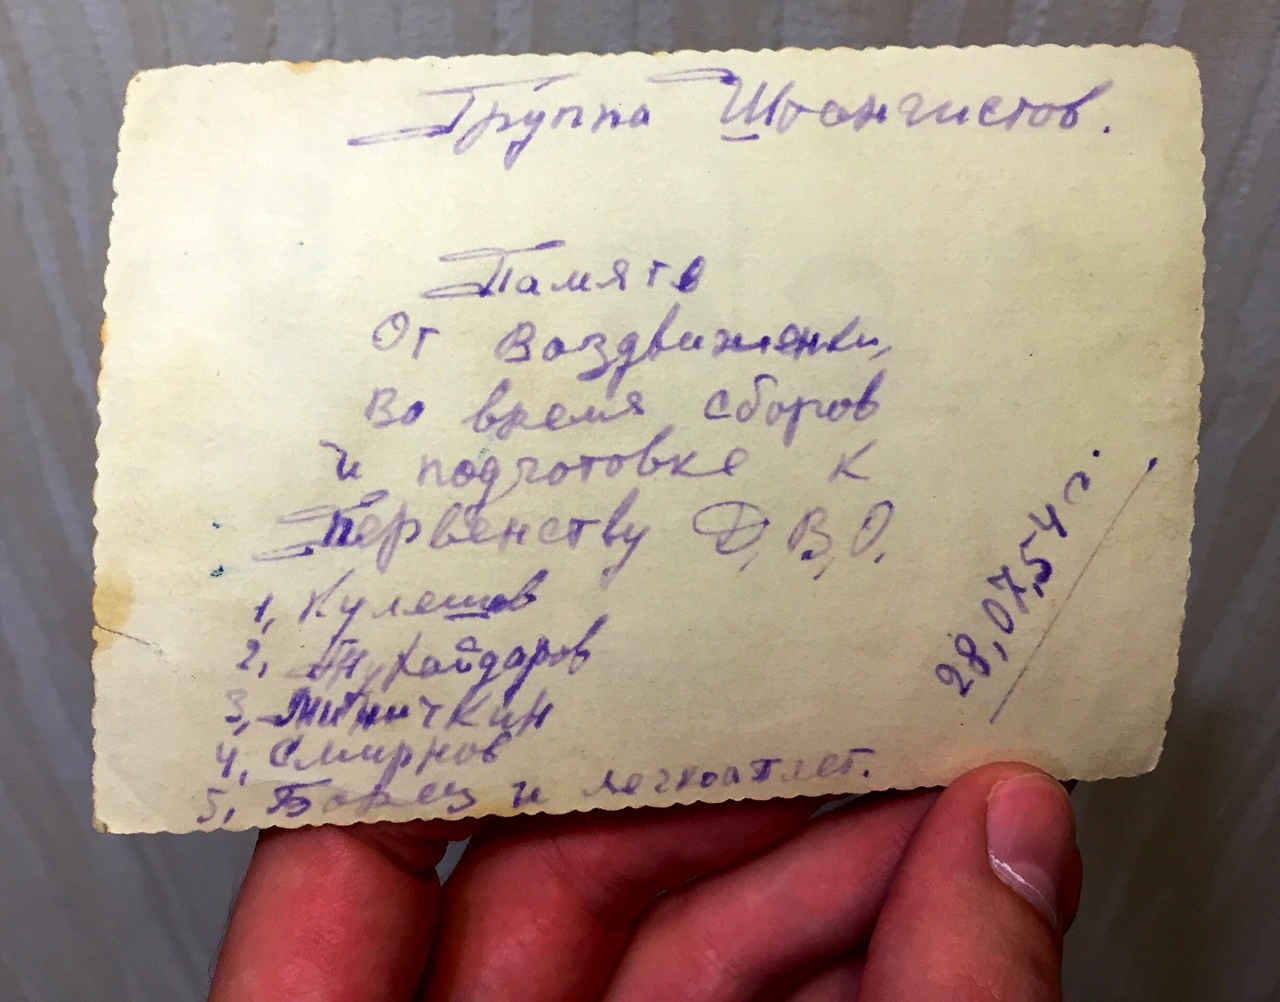 Группа Штангистов.
Память
От Воздвиженки,
Во время сборов
и подготовке к
Первенству Д,В,О,
1, Кулешов
2, Тухайдаров
3,
4, Смирнов
5, Борец и легкоатлет.
28,07,54 г.